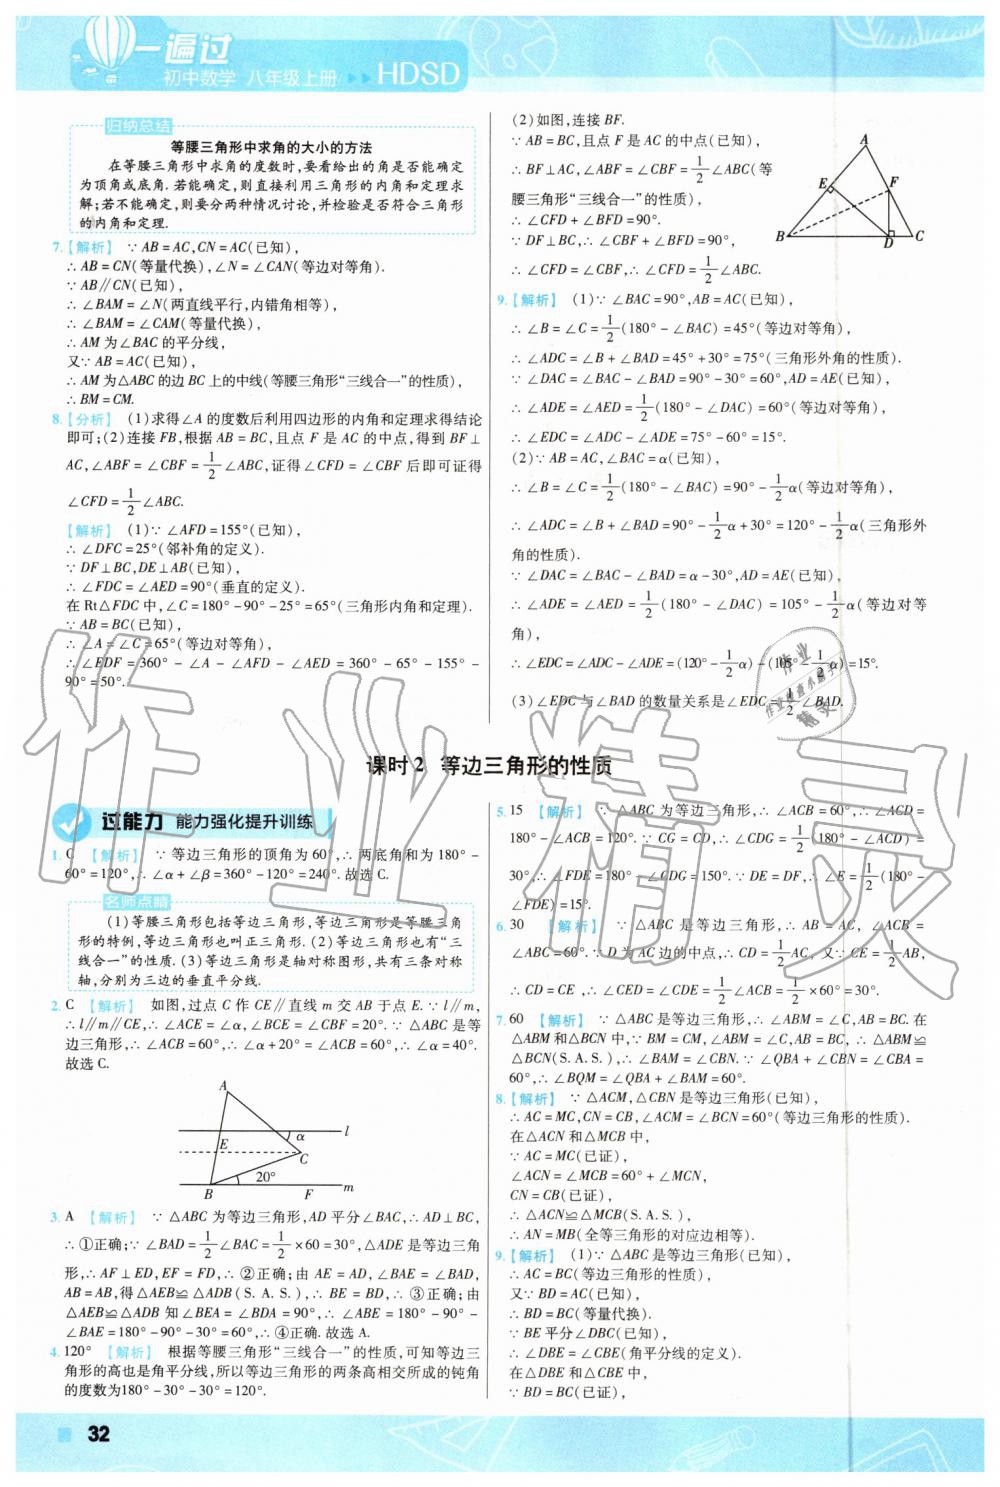 一遍过
初中数学 八年级上册 ▶▶ HDSD
归纳总结
等腰三角形中求角的大小的方法
在等腰三角形中求角的度数时,要看给出的角是否能确定
为顶角或底角.若能确定,则直接利用三角形的内角和定理求
解;若不能确定,则要分两种情况讨论,并检验是否符合三角形
的内角和定理.
7.【解析】 ∵ AB=AC,CN=AC(已知),
∴ AB=CN(等量代换),∠N=∠CAN(等边对等角).
∵ AB∥CN(已知),
∴ ∠BAM=∠N(两直线平行,内错角相等),
∴ ∠BAM=∠CAM(等量代换),
∴ AM为∠BAC的平分线,
又∵ AB=AC(已知),
∴ AM为△ABC的边BC上的中线(等腰三角形“三线合一”的性质),
∴ BM=CM.
8.【分析】 (1)求得∠A的度数后利用四边形的内角和定理求得结论
即可;(2)连接FB,根据AB=BC,且点F是AC的中点,得到BF⊥
AC,∠ABF=∠CBF=1/2∠ABC,证得∠CFD=∠CBF后即可证得
∠CFD=1/2∠ABC.
【解析】 (1)∵ ∠AFD=155°(已知),
∴ ∠DFC=25°(邻补角的定义).
∵ DF⊥BC,DE⊥AB(已知),
∴ ∠FDC=∠AED=90°(垂直的定义).
在Rt△FDC中,∠C=180°-90°-25°=65°(三角形内角和定理).
∵ AB=BC(已知),
∴ ∠A=∠C=65°(等边对等角),
∴ ∠EDF=360°-∠A-∠AFD-∠AED=360°-65°-155°-
90°=50°.
(2)如图,连接BF.
∵ AB=BC,且点F是AC的中点(已知),
∴ BF⊥AC,∠ABF=∠CBF=1/2∠ABC(等
腰三角形“三线合一”的性质),
∴ ∠CFD+∠BFD=90°.
∵ DF⊥BC,∴ ∠CBF+∠BFD=90°,
∴ ∠CFD=∠CBF,∴ ∠CFD=1/2∠ABC.
A
E
F
B
D
C
9.【解析】 (1)∵ ∠BAC=90°,AB=AC(已知),
∴ ∠B=∠C=1/2(180°-∠BAC)=45°(等边对等角),
∴ ∠ADC=∠B+∠BAD=45°+30°=75°(三角形外角的性质).
∵ ∠DAC=∠BAC-∠BAD=90°-30°=60°,AD=AE(已知),
∴ ∠ADE=∠AED=1/2(180°-∠DAC)=60°(等边对等角),
∴ ∠EDC=∠ADC-∠ADE=75°-60°=15°.
(2)∵ AB=AC,∠BAC=α(已知),
∴ ∠B=∠C=1/2(180°-∠BAC)=90°-1/2α(等边对等角),
∴ ∠ADC=∠B+∠BAD=90°-1/2α+30°=120°-1/2α(三角形外
角的性质).
∵ ∠DAC=∠BAC-∠BAD=α-30°,AD=AE(已知),
∴ ∠ADE=∠AED=1/2(180°-∠DAC)=105°-1/2α(等边对等
角),
∴ ∠EDC=∠ADC-∠ADE=(120°-1/2α)-(105°-1/2α)=15°.
(3)∠EDC与∠BAD的数量关系是∠EDC=1/2∠BAD.
课时2 等边三角形的性质
过能力 能力强化提升训练
1. C 【解析】 ∵ 等边三角形的顶角为60°,∴ 两底角和为180°-
60°=120°,∴ ∠α+∠β=360°-120°=240°.故选C.
名师点睛
(1)等腰三角形包括等边三角形,等边三角形是等腰三角
形的特例,等边三角形也叫正三角形.(2)等边三角形也有“三
线合一”的性质.(3)等边三角形是轴对称图形,共有三条对称
轴,分别为三边的垂直平分线.
2. C 【解析】 如图,过点C作CE∥直线m交AB于点E.∵ l∥m,
∴ l∥m∥CE,∴ ∠ACE=∠α,∠BCE=∠CBF=20°.∵ △ABC是等
边三角形,∴ ∠ACB=60°,∴ ∠α+20°=∠ACB=60°,∴ ∠α=40°.
故选C.
A
α
l
E
C
20°
B
F
m
3. A 【解析】 ∵ △ABC为等边三角形,AD平分∠BAC,∴ AD⊥BC,
∴ ①正确;∵ ∠BAD=1/2∠BAC=1/2×60=30°,△ADE是等边三角
形,∴ AF⊥ED,EF=FD,∴ ②正确;由AE=AD,∠BAE=∠BAD,
AB=AB,得△AEB≌△ADB(S.A.S.),∴ BE=BD,∴ ③正确;由
△AEB≌△ADB知∠BEA=∠BDA=90°,∴ ∠ABE=180°-90°-
∠BAE=180°-90°-30°=60°,∴ ④正确.故选A.
4. 120° 【解析】 根据等腰三角形“三线合一”的性质,可知等边三
角形的高也是角平分线,所以等边三角形的两条高相交所成的钝角
的度数为180°-30°-30°=120°.
5. 15 【解析】 ∵ △ABC为等边三角形,∴ ∠ACB=60°,∴ ∠ACD=
180°-∠ACB=120°.∵ CG=CD,∴ ∠CDG=1/2(180°-∠ACD)=
30°,∴ ∠FDE=180°-∠CDG=150°.∵ DE=DF,∴ ∠E=1/2(180°-
∠FDE)=15°.
6. 30 【解析】 ∵ △ABC是等边三角形,∴ AB=AC,∠ACB=
∠ABC=60°.∵ D为AC边的中点,∴ CD=1/2AC,又∵ CE=1/2AB,
∴ CD=CE,∴ ∠CED=∠CDE=1/2∠ACB=1/2×60°=30°.
7. 60 【解析】 ∵ △ABC是等边三角形,∴ ∠ABM=∠C,AB=BC.在
△ABM和△BCN中,∵ BM=CM,∠ABM=∠C,AB=BC,∴ △ABM≌
△BCN(S.A.S.),∴ ∠BAM=∠CBN.∵ ∠QBA+∠CBN=∠CBA=
60°,∴ ∠BQM=∠QBA+∠BAM=60°.
8.【解析】 ∵ △ACM,△CBN是等边三角形(已知),
∴ AC=MC,CN=CB,∠ACM=∠BCN=60°(等边三角形的性质).
在△ACN和△MCB中,
∵ AC=MC(已证),
∠ACN=∠MCB=60°+∠MCN,
CN=CB(已证),
∴ △ACN≌△MCB(S.A.S.),
∴ AN=MB(全等三角形的对应边相等).
9.【解析】 (1)∵ △ABC是等边三角形(已知),
∴ AC=BC(等边三角形的性质),
又∵ BD=AC(已知),
∴ BD=BC(等量代换).
∵ BE平分∠DBC(已知),
∴ ∠DBE=∠CBE(角平分线的定义).
在△DBE和△CBE中,
∵ BD=BC(已证),
32
作业精灵